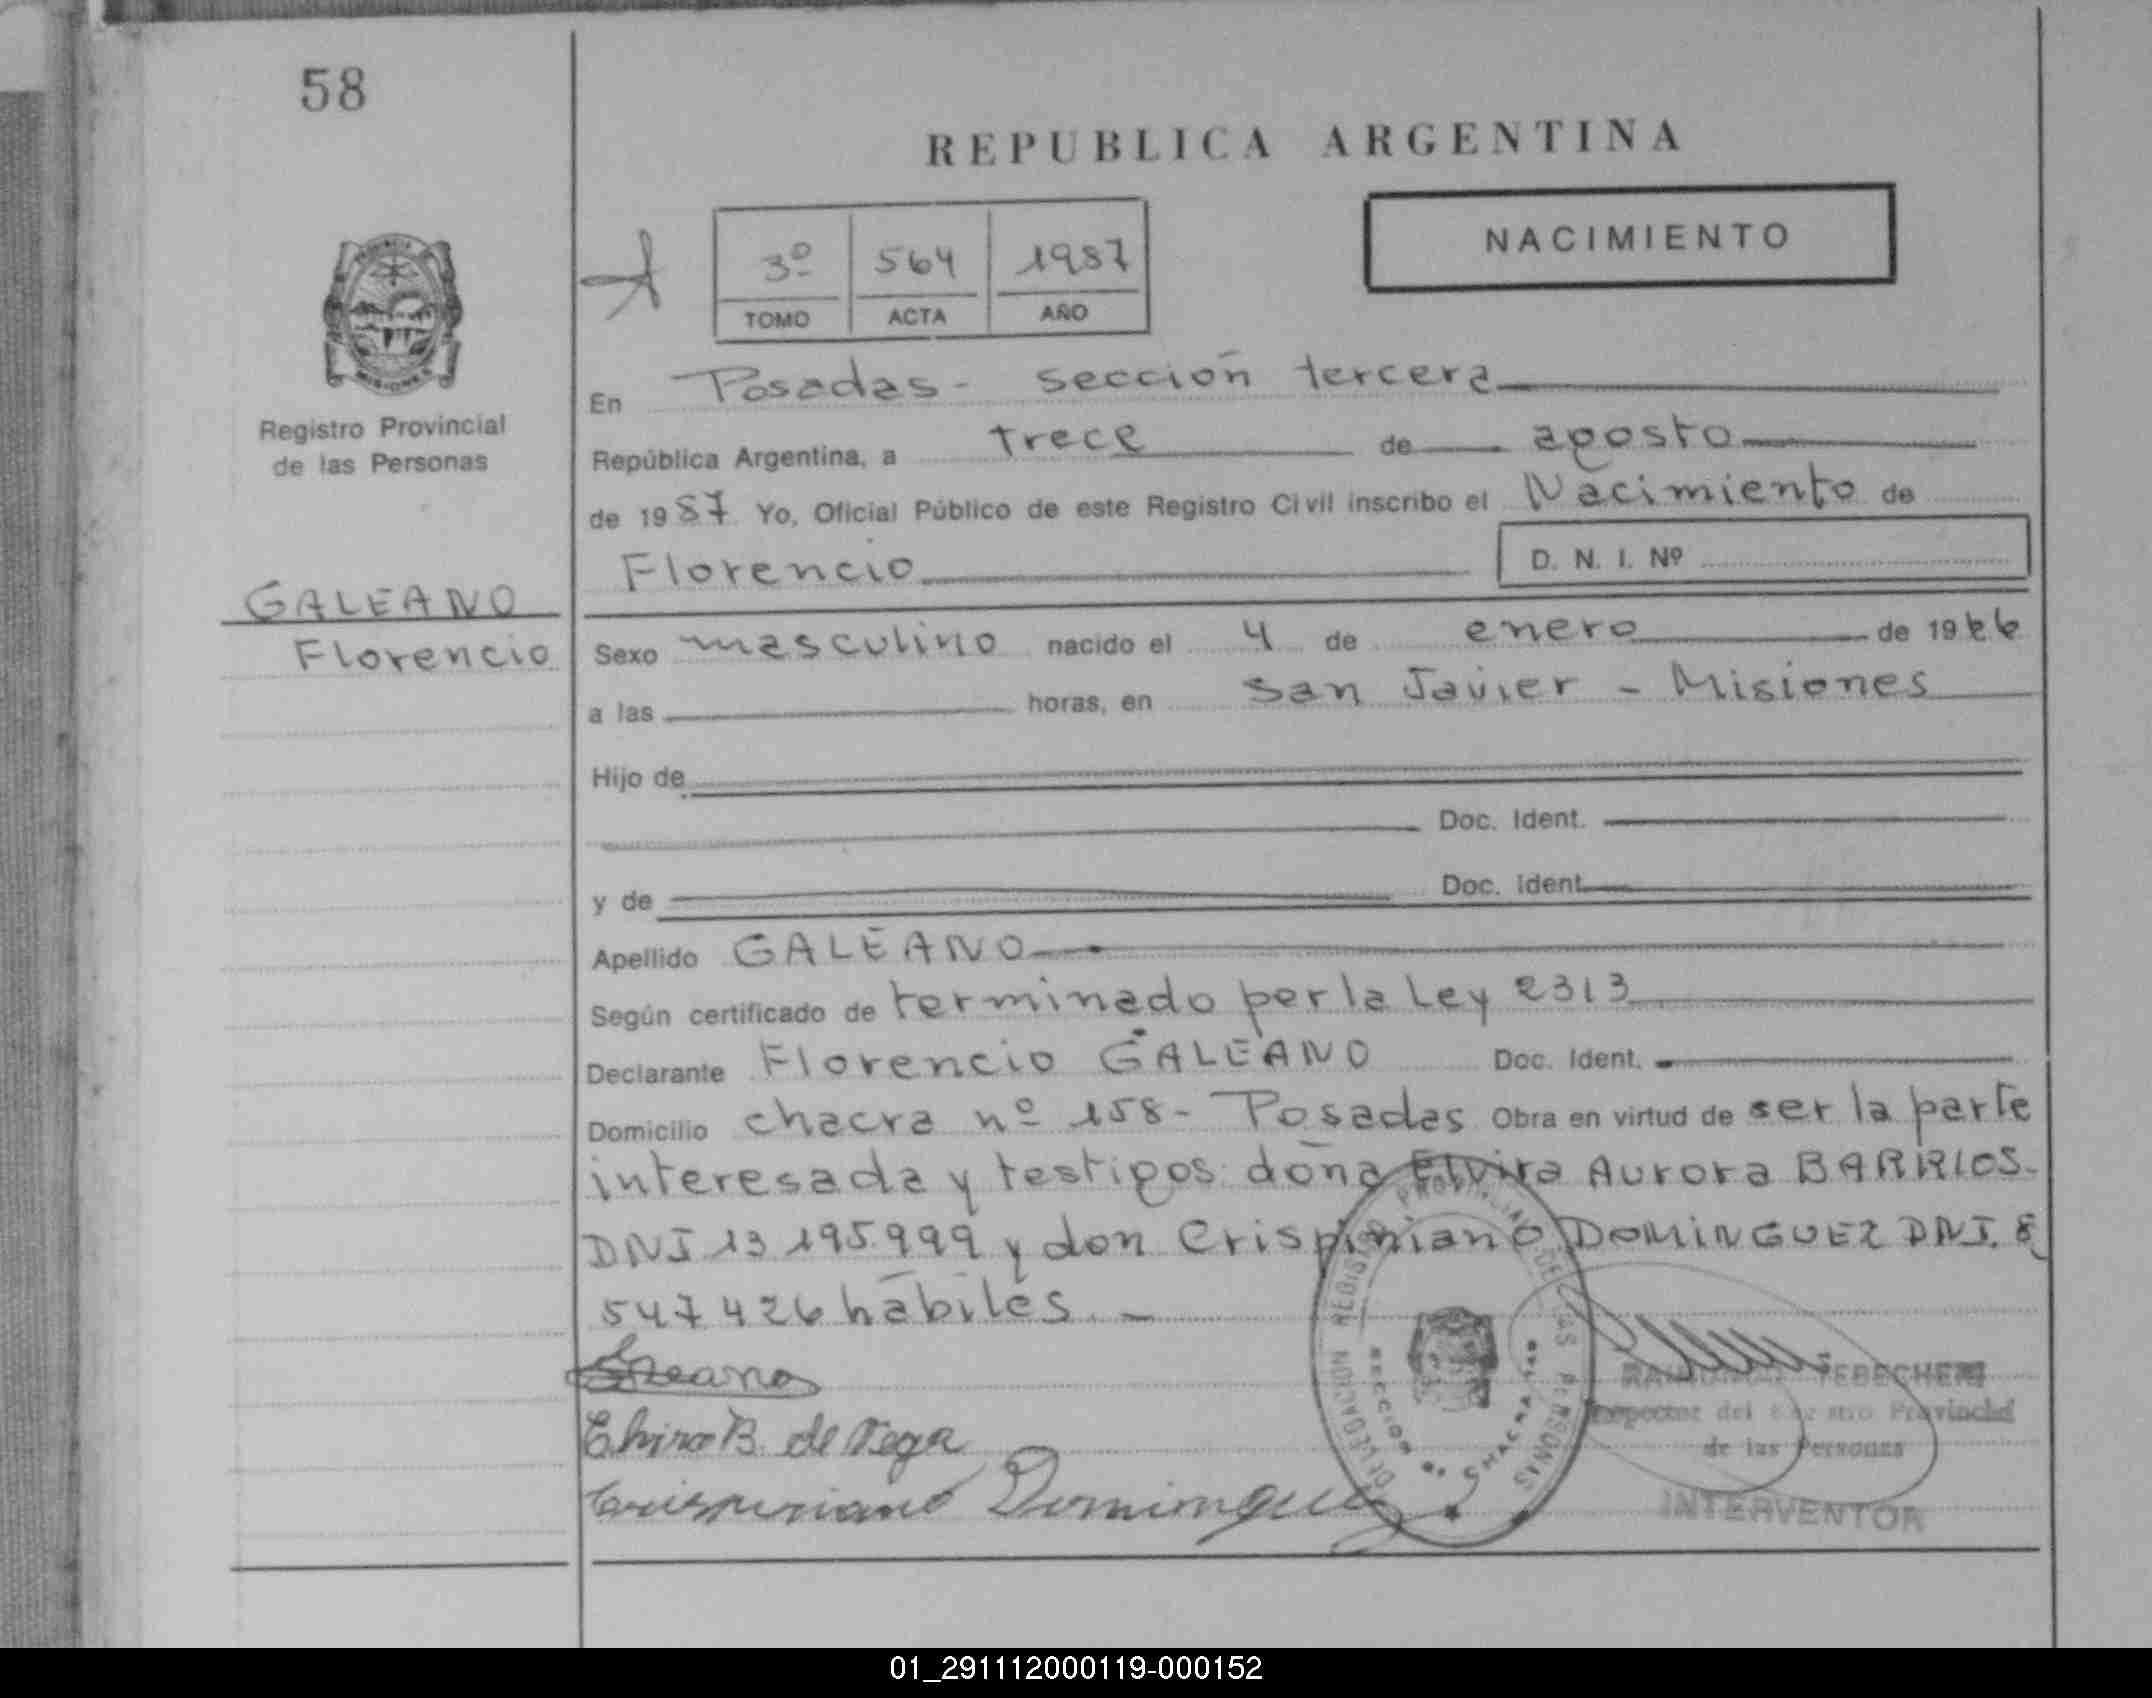 58
REPUBLICA ARGENTINA
NACIMIENTO
3º 564 1987
TOMO ACTA AÑO
MISIONES
Registro Provincial
de las Personas
GALEANO
Florencio
En Posadas - sección tercera
República Argentina, a trece de agosto
de 1987 Yo, Oficial Público de este Registro Civil inscribo el Nacimiento de
Florencio D. N. I. Nº
Sexo masculino nacido el 4 de enero de 1966
a las horas, en San Javier - Misiones
Hijo de
Doc. Ident.
y de Doc. Ident.
Apellido GALEANO
Según certificado de terminado por la Ley 2313
Declarante Florencio GALEANO Doc. Ident.
Domicilio chacra nº 158- Posadas Obra en virtud de ser la parte
interesada y testigos: doña Elvira Aurora BARRIOS-
DNI 13 195.999 y don Crispiniano DOMINGUEZ DNI. 8
547 426 hábiles. -
Elvira B. de Vega
Crispiniano Dominguez
DELEGACION REGISTRO PROVINCIAL DE LAS PERSONAS
SECCION CHACRA
TEBECHERI
Inspector del Registro Provincial
de las Personas
INTERVENTOR
01_291112000119-000152